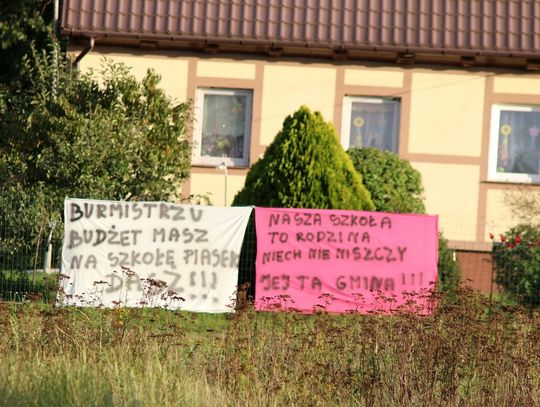 BURMISTRZU
BUDŻET MASZ
NA SZKOŁĘ PIASEK
DASZ!!!
NASZA SZKOŁA
TO RODZINA
NIECH NIE NISZCZY
JEJ TA GMINA!!!